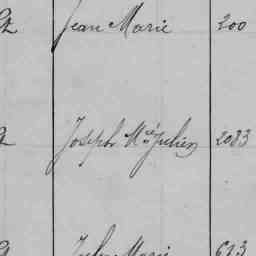 Jean Marie 200
Joseph Mce Julien 2083
Jules Marie 613